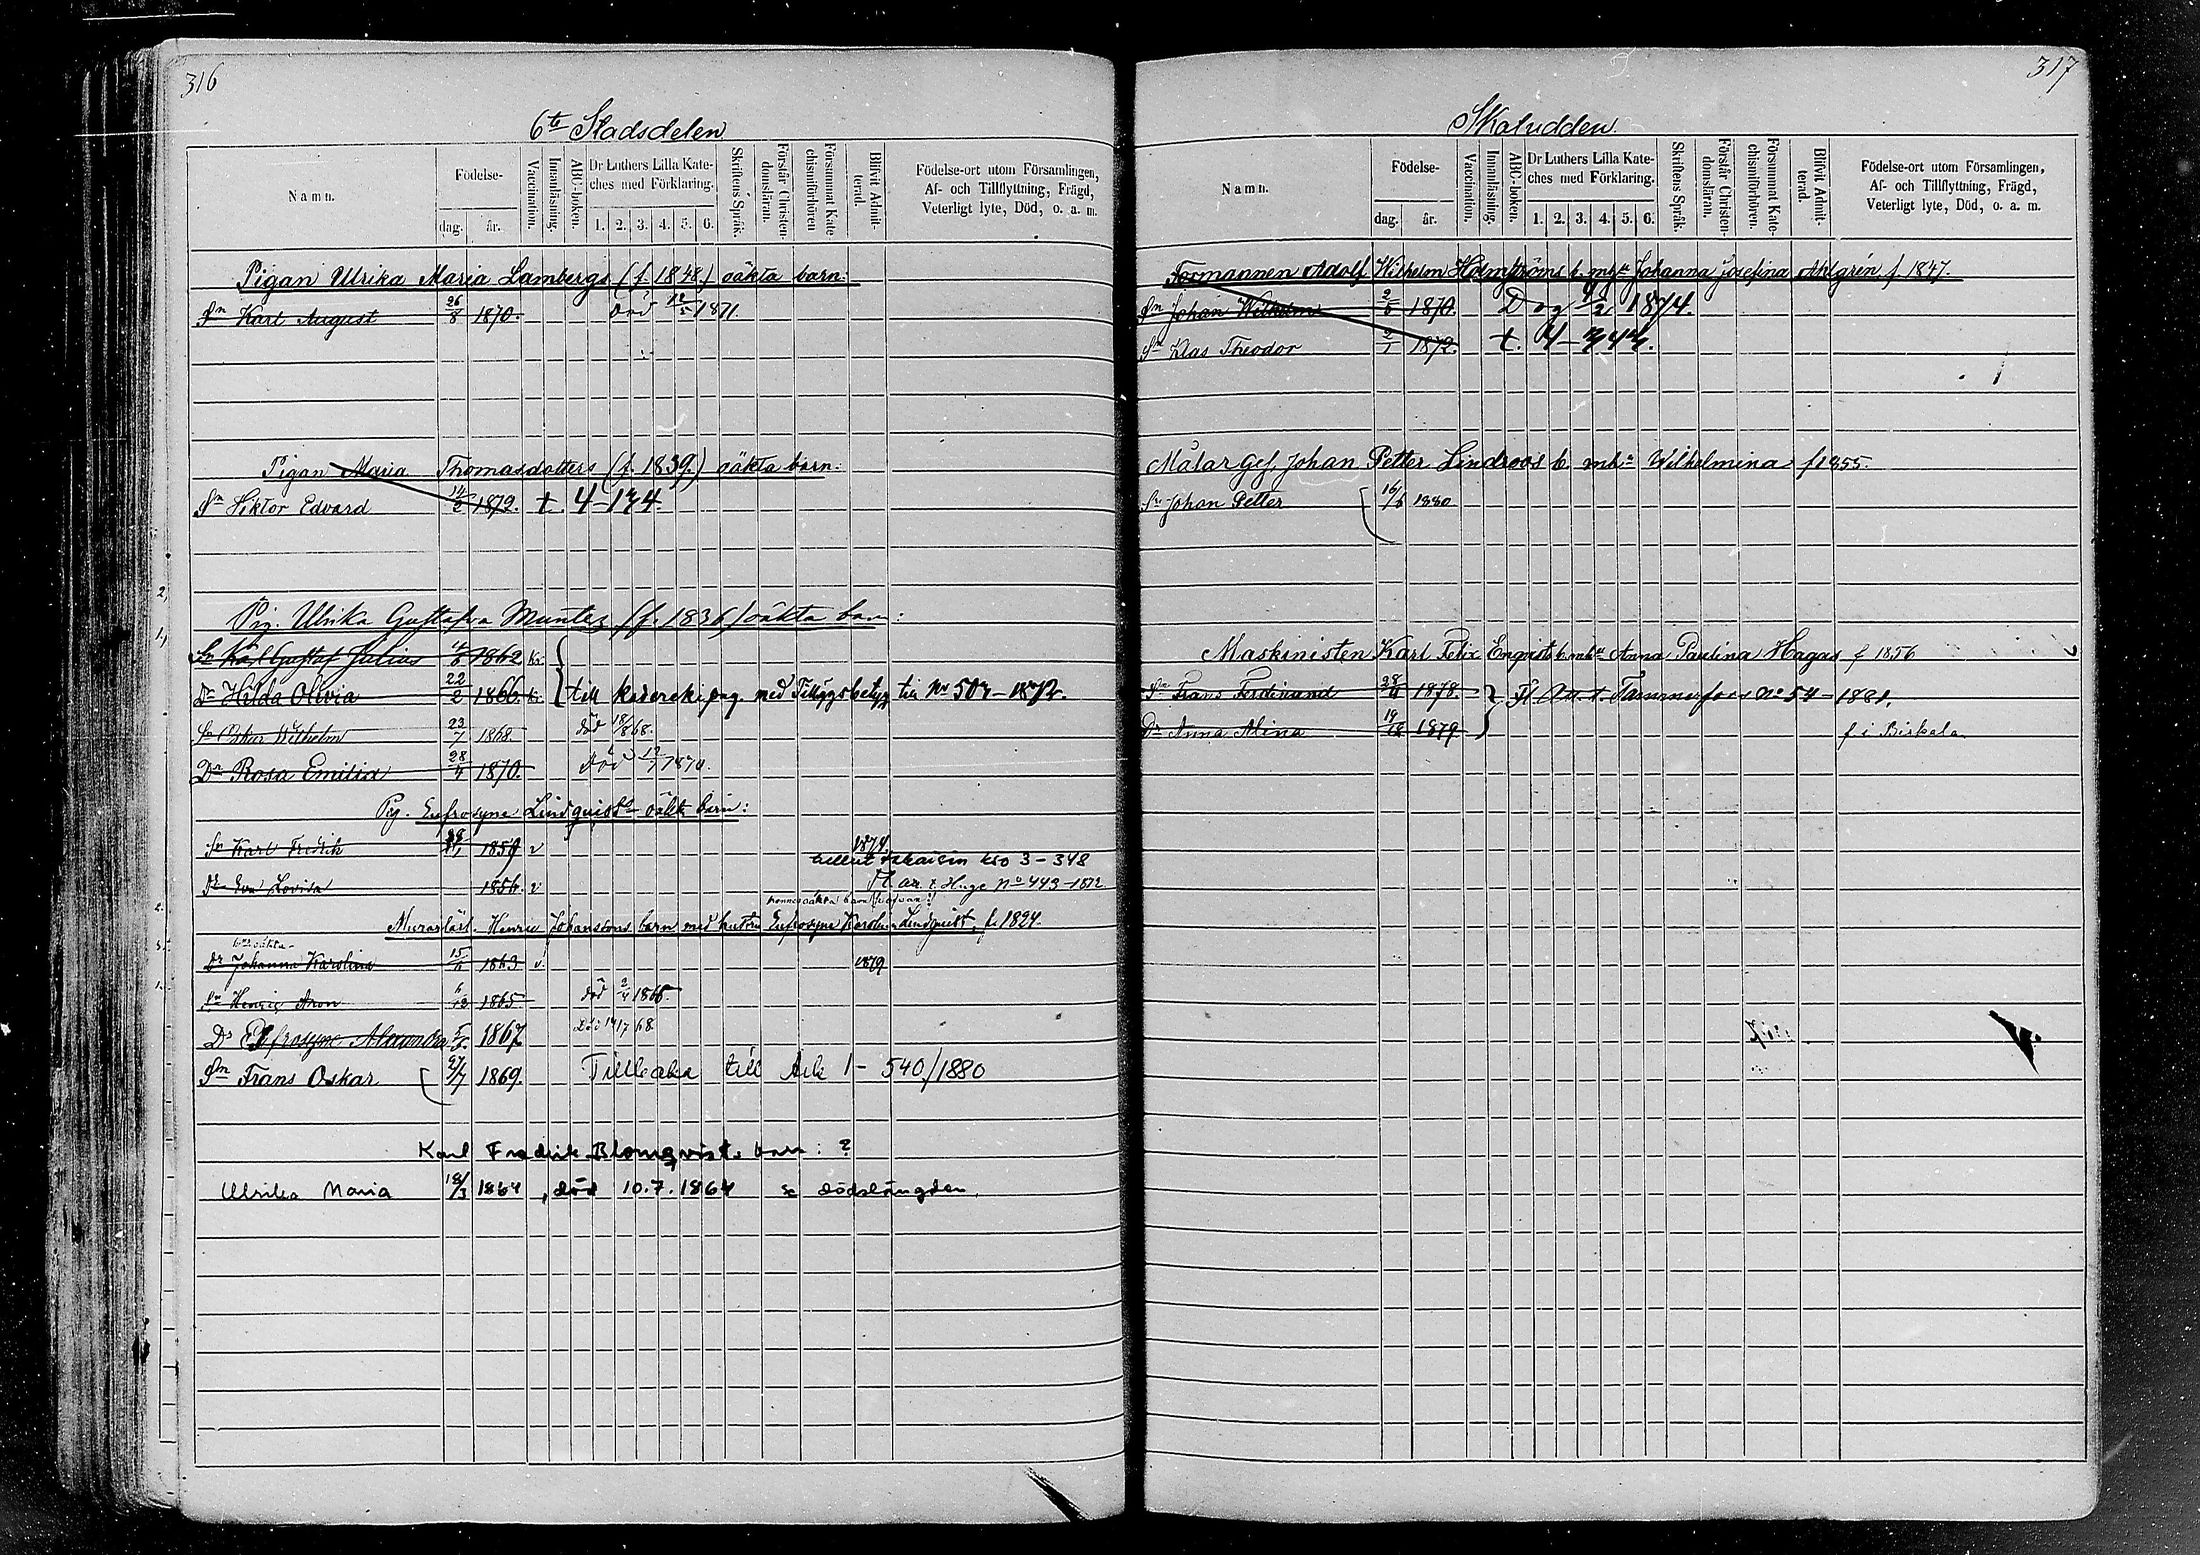 316
6te Stadsdelen
Namn.
Födelse-
dag. år.
Vaccination.
Innanläsning.
ABC-boken.
Dr Luthers Lilla Kate-
ches med Förklaring.
1. 2. 3. 4. 5. 6.
Skriftens Språk.
Förstår Christen-
domsläran.
Försummat Kate-
chismiförhören
Blifvit Admit-
terad.
Födelse-ort utom Församlingen,
Af- och Tillflyttning, Frägd,
Veterligt lyte, Död, o. a. m.
Pigan Ulrika Maria Lambergs (f. 1848.) oäkta barn:
Sn Karl August 26/8 1870. död 12/5 1871.
Pigan Maria Thomasdotters (f. 1839.) oäkta barn:
Sn Viktor Edvard 14/2 1872. t. 4-134.
Pig. Ulrika Gustafva (f. 1836) oäkta barn:
Sn Karl Gustaf Julius 4/6 1862
Dr Hilda Olivia 22/2 1866. till med till No 507-1872.
Sn Oskar Wilhelm 23/7 1868. död 18/8 68.
Dr Rosa Emilia 28/4 1870. död 12/7 1870.
Pig. Eufrosyne Lindquists oäkta barn:
Sn Karl Fredrik 1859 v 1874.
3-348
Dr Eva Lovisa 1856. v No 443-1872.
Henric Johanssons barn med hustru Eufrosyne Karolina Lindquist, f. 1824.
Dr Johanna Karolina 15/6 1863 v. 1879
Sn Henric Aron 6/12 1865. död 2/4 1866.
Dr Eufrosyne Alexandra 5/5 1867 Död 17 68
Sn Frans Oskar 27/7 1869. till 1-540/1880
Karl Fredrik Blomqvists barn: ?
Ulrika Maria 18/3 1864, död 10.7.1864 se dödslängden.
317
Skatudden.
Namn.
Födelse-
dag. år.
Vaccination.
Innanläsning.
ABC-boken.
Dr Luthers Lilla Kate-
ches med Förklaring.
1. 2. 3. 4. 5. 6.
Skriftens Språk.
Förstår Christen-
domsläran.
Försummat Kate-
chismiförhören.
Blifvit Admit-
terad.
Födelse-ort utom Församlingen,
Af- och Tillflyttning, Frägd,
Veterligt lyte, Död, o. a. m.
Formannen Adolf Wilhelm Holmströms b. m. Johanna Josefina Ahlgrén f 1847.
Sn Johan Wilhelm 1870. Dog 1874.
Sn Klas Theodor 2/1 1872. t. 4-343.
Målar Ges. Johan Petter Lindroos b. mhn Wilhelmina f 1855.
Sn Johan Petter 16/6 1880
Maskinisten Karl Felix Enqvists b. mhn Anna Paulina Hagas f 1856
Sn Frans Ferdinand 28/11 1878. Fl. Att. t. Tammerfors No 54-1881.
Dr Anna Alina 1879 f. i Birkala